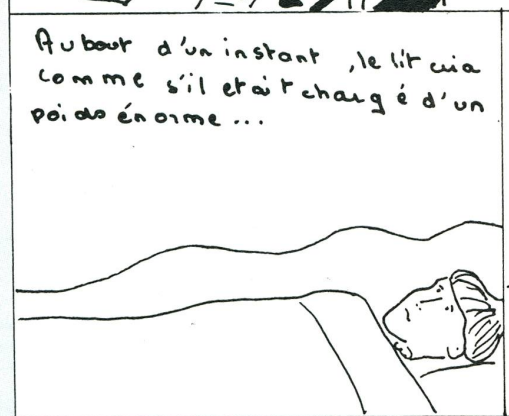 Au bout d'un instant, le lit cria
comme s'il etait chargé d'un
poids énorme...